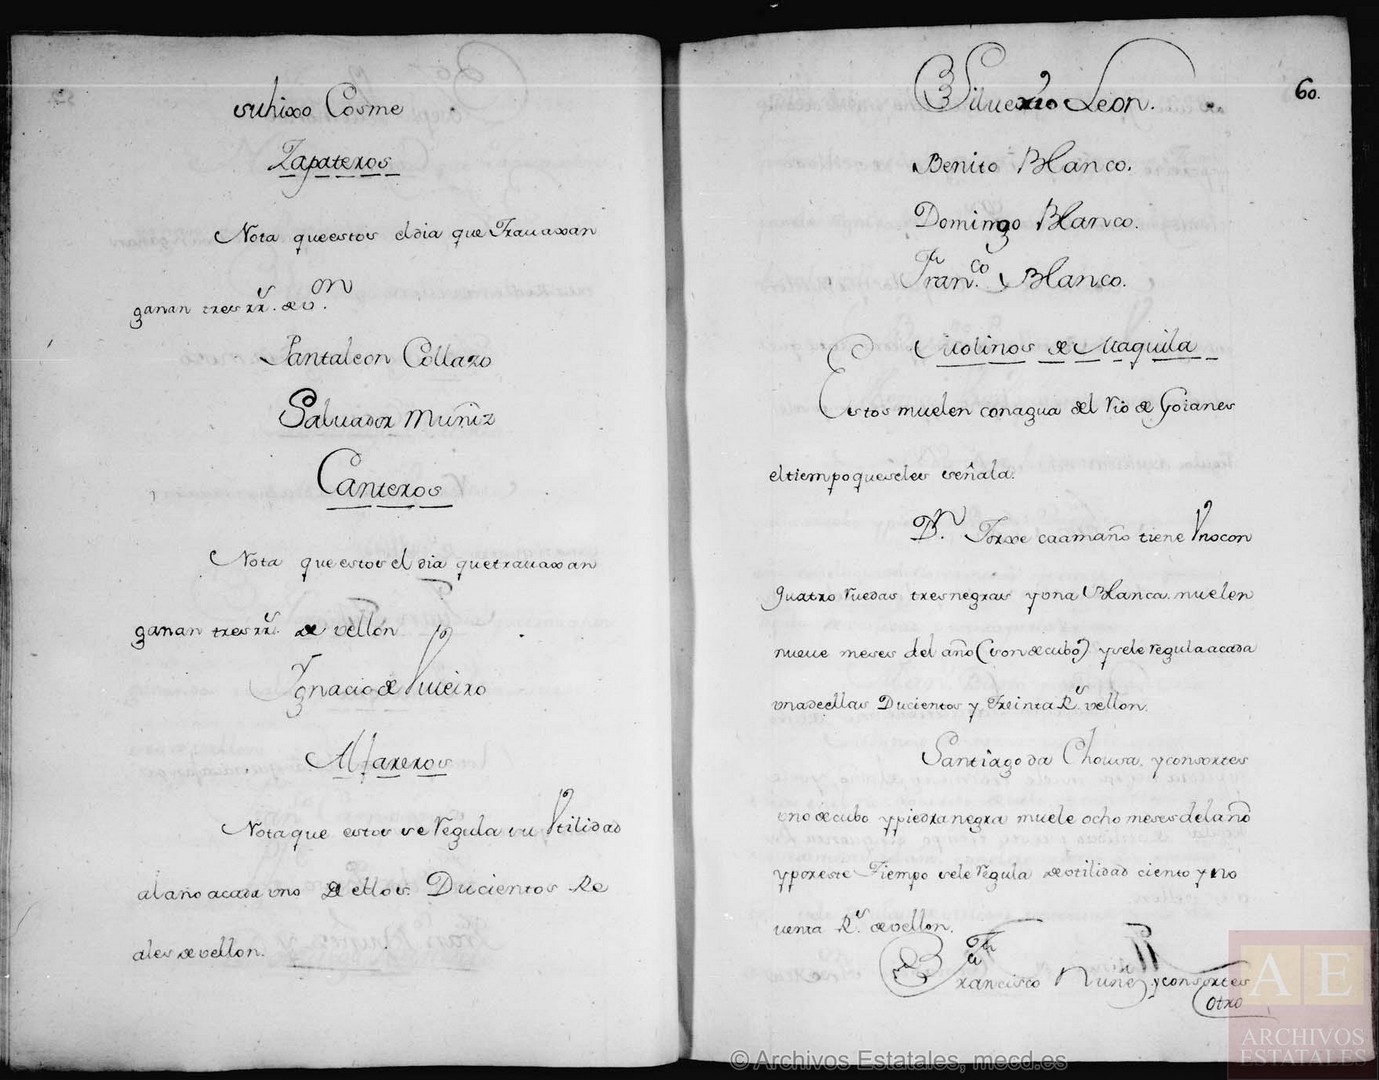 su hixo Cosme
Zapateros
Nota que estos el dia que Trauaxan
ganan tres rr.s de v.on
Pantaleon Collazo
Saluador Muñiz
Canteros
Nota que estos el dia que trauaxan
ganan tres rr.s de vellon
Ygnacio de Vueiro
Alfareros
Nota que estos se Regula su Vtilidad
al año a cada vno de ellos Ducientos Re
ales de vellon.
60.
Siluerio Leon.
Benito Blanco.
Domingo Blanco.
Fran.co Blanco.
Molinos de Maquila
Estos muelen con agua del Rio de Goianes
el tiempo que se les señala.
D.n Jorxe Caamaño tiene Vno con
quatro Ruedas tres negras y una Blanca. muelen
nueue meses del año (son de cubo) y se le Regula a cada
vna de ellas Ducientos y Treinta R.s vellon.
Santiago da Chousa, y consortes
vno de cubo y piedra negra muele ocho meses del año
y por este Tiempo se le Regula de vtilidad ciento y no
venta R.s de vellon.
Francisco Nuñez y consortes
Otro
© Archivos Estatales, mecd.es
AE
ARCHIVOS
ESTATALES